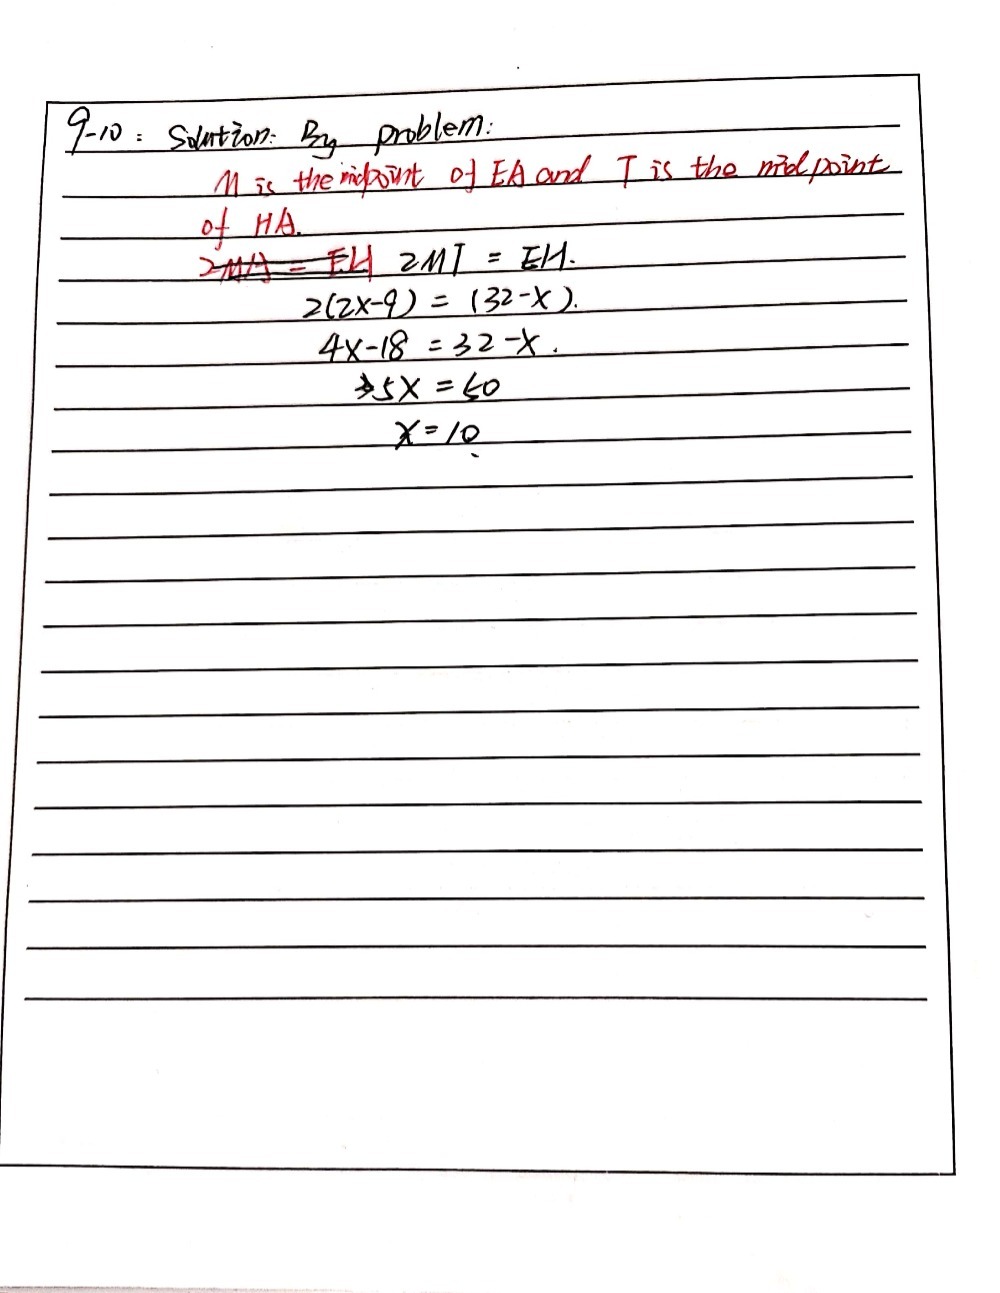 9-10: Solution: By problem:
M is the midpoint of EA and T is the midpoint
of HA.
2MA = EH 2MT = EH.
2(2x-9) = (32-x).
4x-18 = 32-x.
5x = 50
x=10